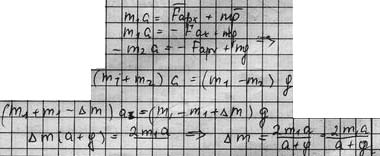 m₁a = Fарх + mg
m₁a = - Fах + mg
- m₂a = - Fарх + mg ⇒
(m₁ + m₂) a = (m₁ - m₂) g
(m₁ + m₁ - Δm) a = (m₁ - m₁ + Δm) g
Δm (a + g) = 2m₁a ⇒ Δm = 2m₁a / a+g = 2m₁a / a+g